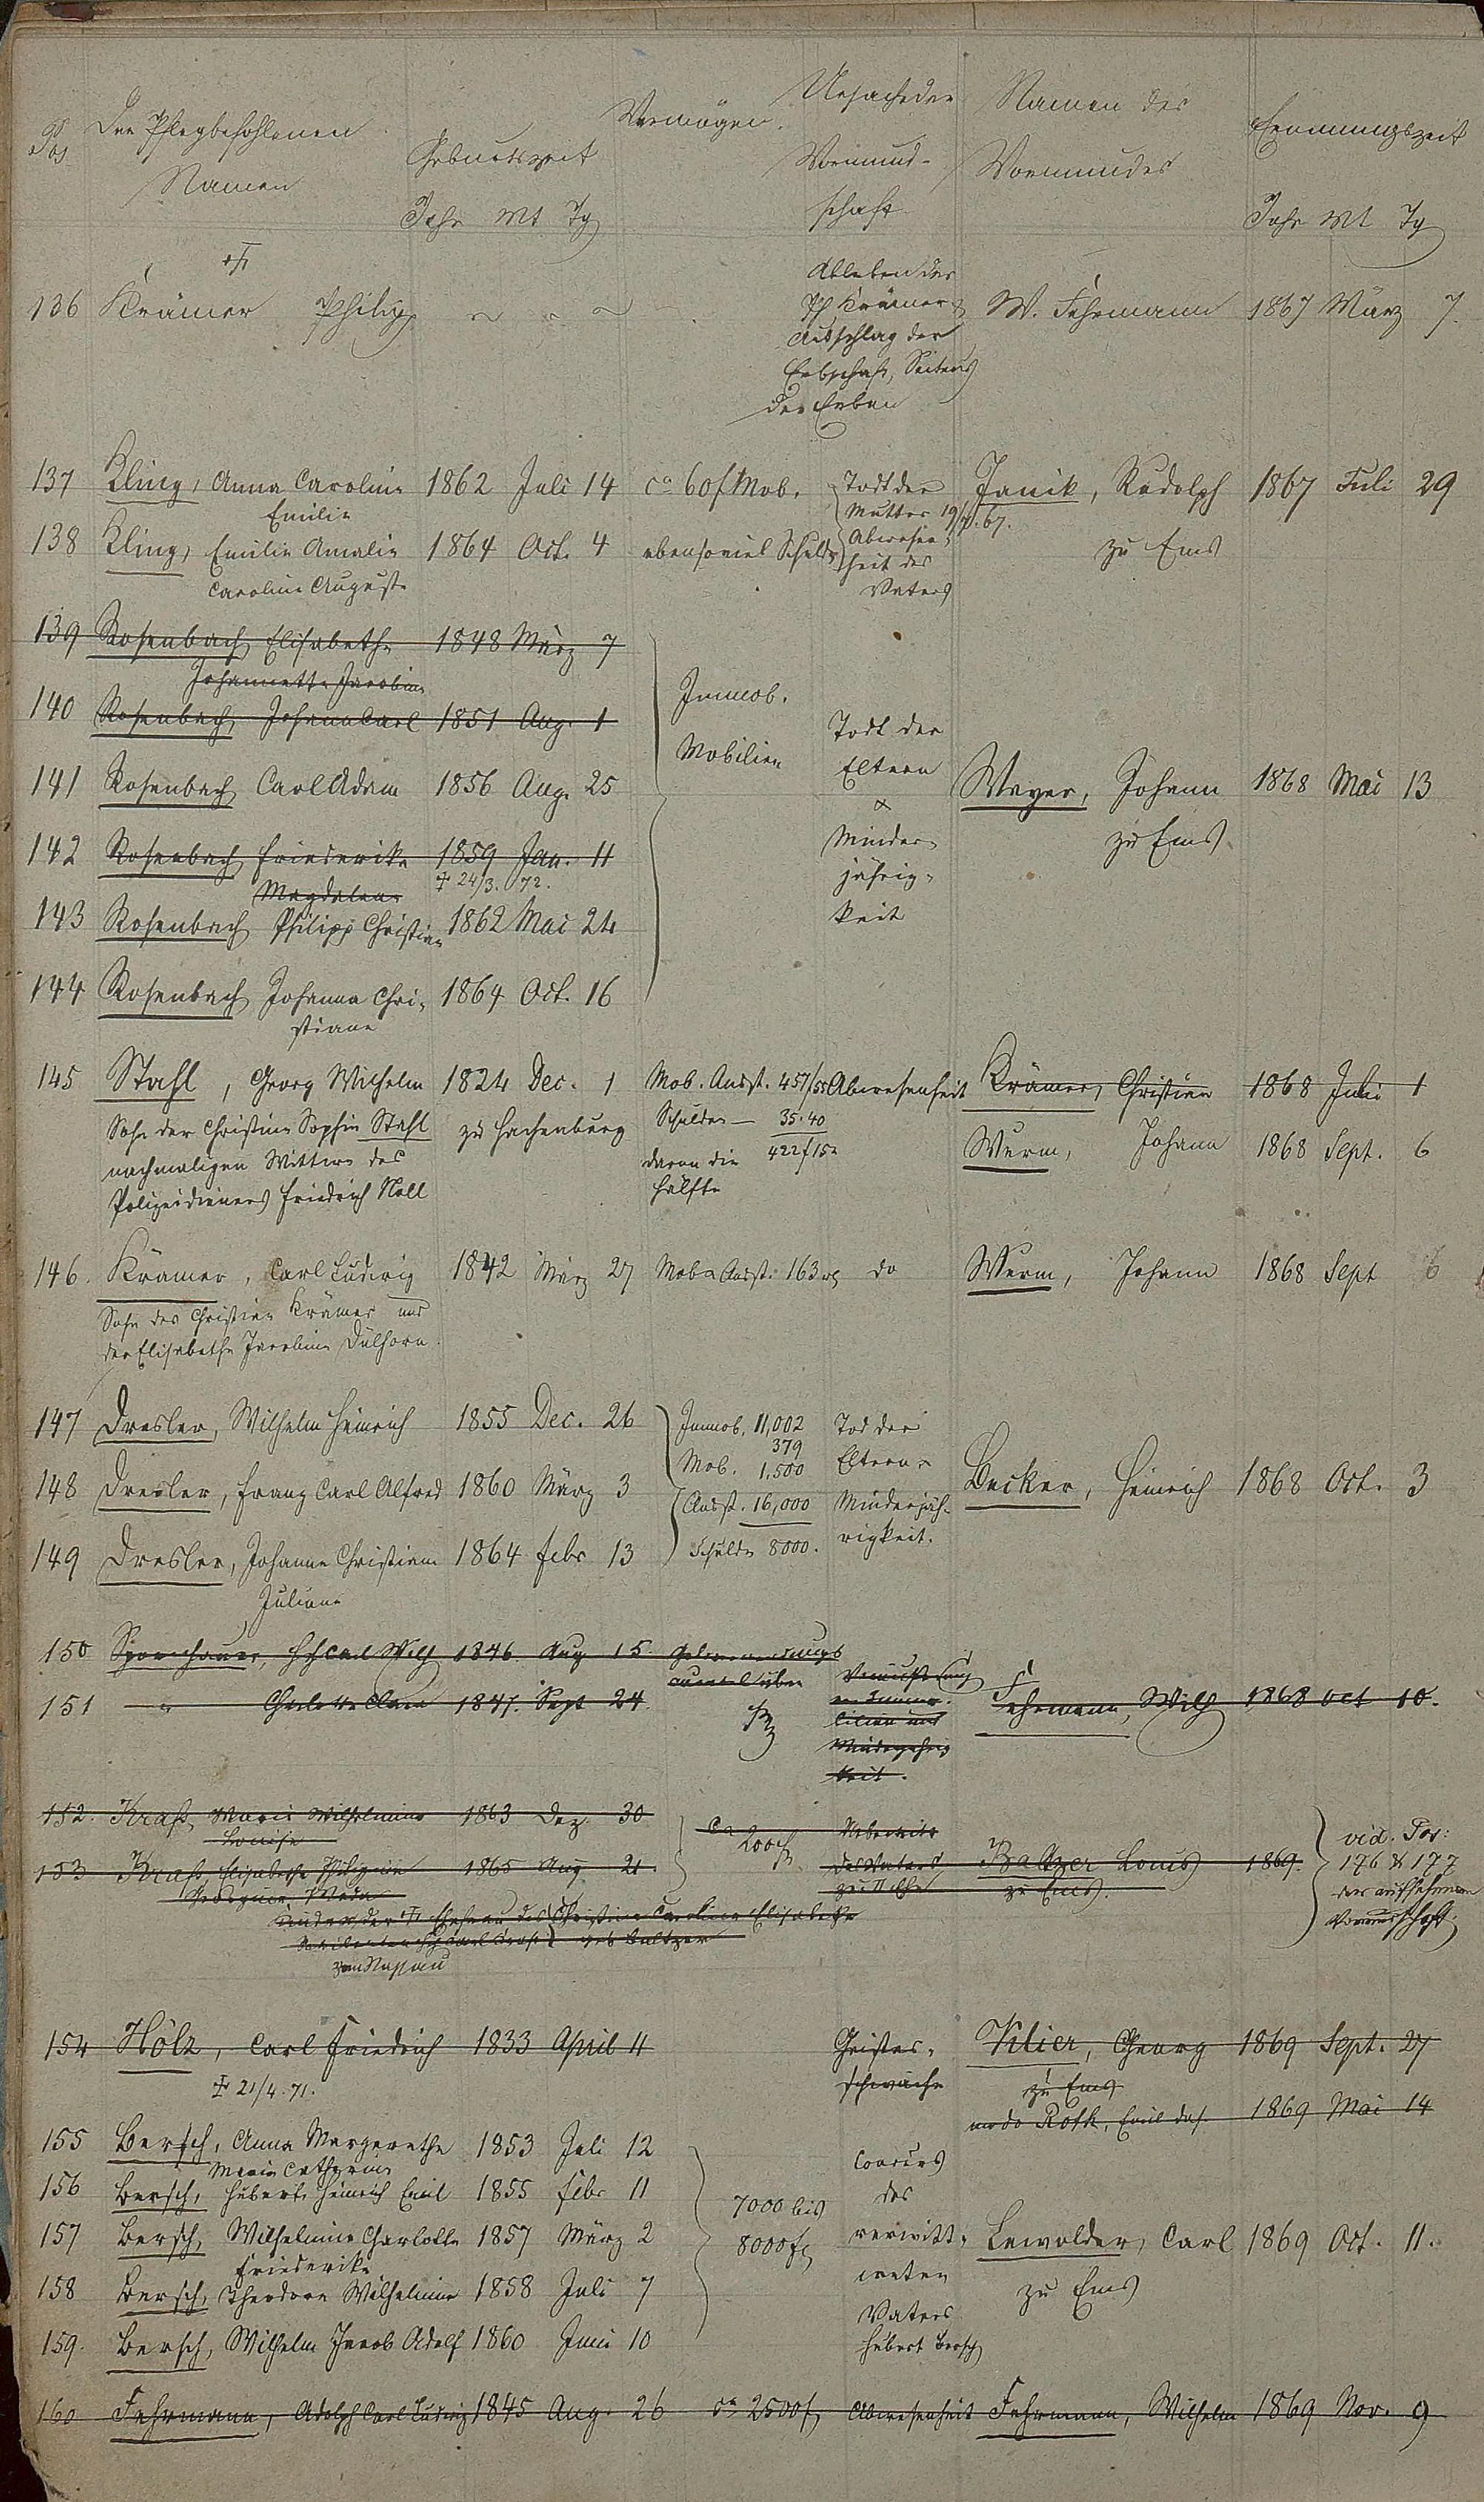 Pos Der Pflegbefohlenen Namen Geburtszeit Vermögen. Ursache der Vormundschaft Namen des Vormundes Ernennungszeit
Jahr Mt Tg Jahr Mt Tg
136 Krämer Philipp Ableben des W. Fehrmann 1867 März 7.
Ph Krämer
Ausschlag der
Erbschaft, Seitens
der Erben
137 Kling, Anna Caroline 1862 Juli 14 ca 60 f Mob. Todt der Janik, Rudolph 1867 Juli 29
Emilie Mutter 19/7.67.
138 Kling, Emilie Amalie 1864 Oct. 4 ebensoviel Schuld Abwesen- zu Ems
Caroline Auguste heit des
Vaters
139 Rosenbach Elisabethe 1848 März 7
Johannette Jacobine
140 Rosenbach, Johann Carl 1851 Aug. 1 Immob. Todt der
141 Rosenbach Carl Adam 1856 Aug. 25 Mobilien Eltern Mayer, Johann 1868 Mai 13
142 Rosenbach Friederike 1859 Jan. 11 Minder- zu Ems
Magdalena † 24/3. 72. jährig-
143 Rosenbach Philipp Christian 1862 Mai 24 keit
144 Rosenbach Johanna Chri- 1864 Oct. 16
stiane
145 Stahl, Georg Wilhelm 1824 Dec. 1 Mob. Ausst. 457/55 Abwesenheit Krämer, Christian 1868 Juli 1
Sohn der Christine Sophie Stahl zu Hachenburg Schulden — 35.40
nachmaligen Wittwe des davon die 422 f 15 Wurm, Johann 1868 Sept. 6
Polizeidieners Friedrich Noll Hälfte
146. Krämer, Carl Ludwig 1842 März 27 Mob Ausst. 163 do Wurm, Johann 1868 Sept 6
Sohn des Christian Krämer und
der Elisabethe Jacobine Dülhorn.
147 Dresler, Wilhelm Heinrich 1855 Dec. 26 Immob. 11,002 Tod der
379 Eltern
148 Dresler, Franz Carl Alfred 1860 März 3 Mob. 1,500 Becker, Heinrich 1868 Oct. 3
Ausst. 16,000 Minderjäh-
149 Dresler, Johanne Christiane 1864 Febr 13 Schuld 8000. rigkeit.
Juliane
150 Carl Wilh 1846 Aug 15.
151 " Charlotte Clara 1847. Sept 24 Fehrmann, Wilh 1868 Oct 10.
152. Kraß, Marie Wilhelmine 1863 Dez. 30 Ca 200 f
Louise
153 Kraß, Elisabethe Philippine 1865 Aug 21. des Vaters Baltzer Louis 1869. vid. Pos:
zu Ems. 176 & 177
der Ehefrau des Christine Caroline Elisabethe
geb Baltzer Vormundschaft.
zu Nassau
154 Hölz, Carl Friedrich 1833 April 11 Geistes- Klier, Georg 1869 Sept. 27
† 21/4. 71. schwäche zu Ems
modo Roth, Emil das. 1869 Mai 14
155 Bersch, Anna Margarethe 1853 Juli 12 Concurs
Marie Catharine
156 Bersch, Hubert Heinrich Emil 1855 Febr 11 7000 bis des
157 Bersch, Wilhelmine Charlotte 1857 März 2 8000 f verwitt- Lewalder, Carl 1869 Oct. 11.
Friederike weten
158 Bersch, Theodore Wilhelmine 1858 Juli 7 Vaters zu Ems
159. Bersch, Wilhelm Jacob Adolf 1860 Juni 10 Hubert Bersch
160 Fehrmann, Adolph Carl Ludwig 1845 Aug. 26 ca 2500 f Abwesenheit Fehrmann, Wilhelm 1869 Nov. 9